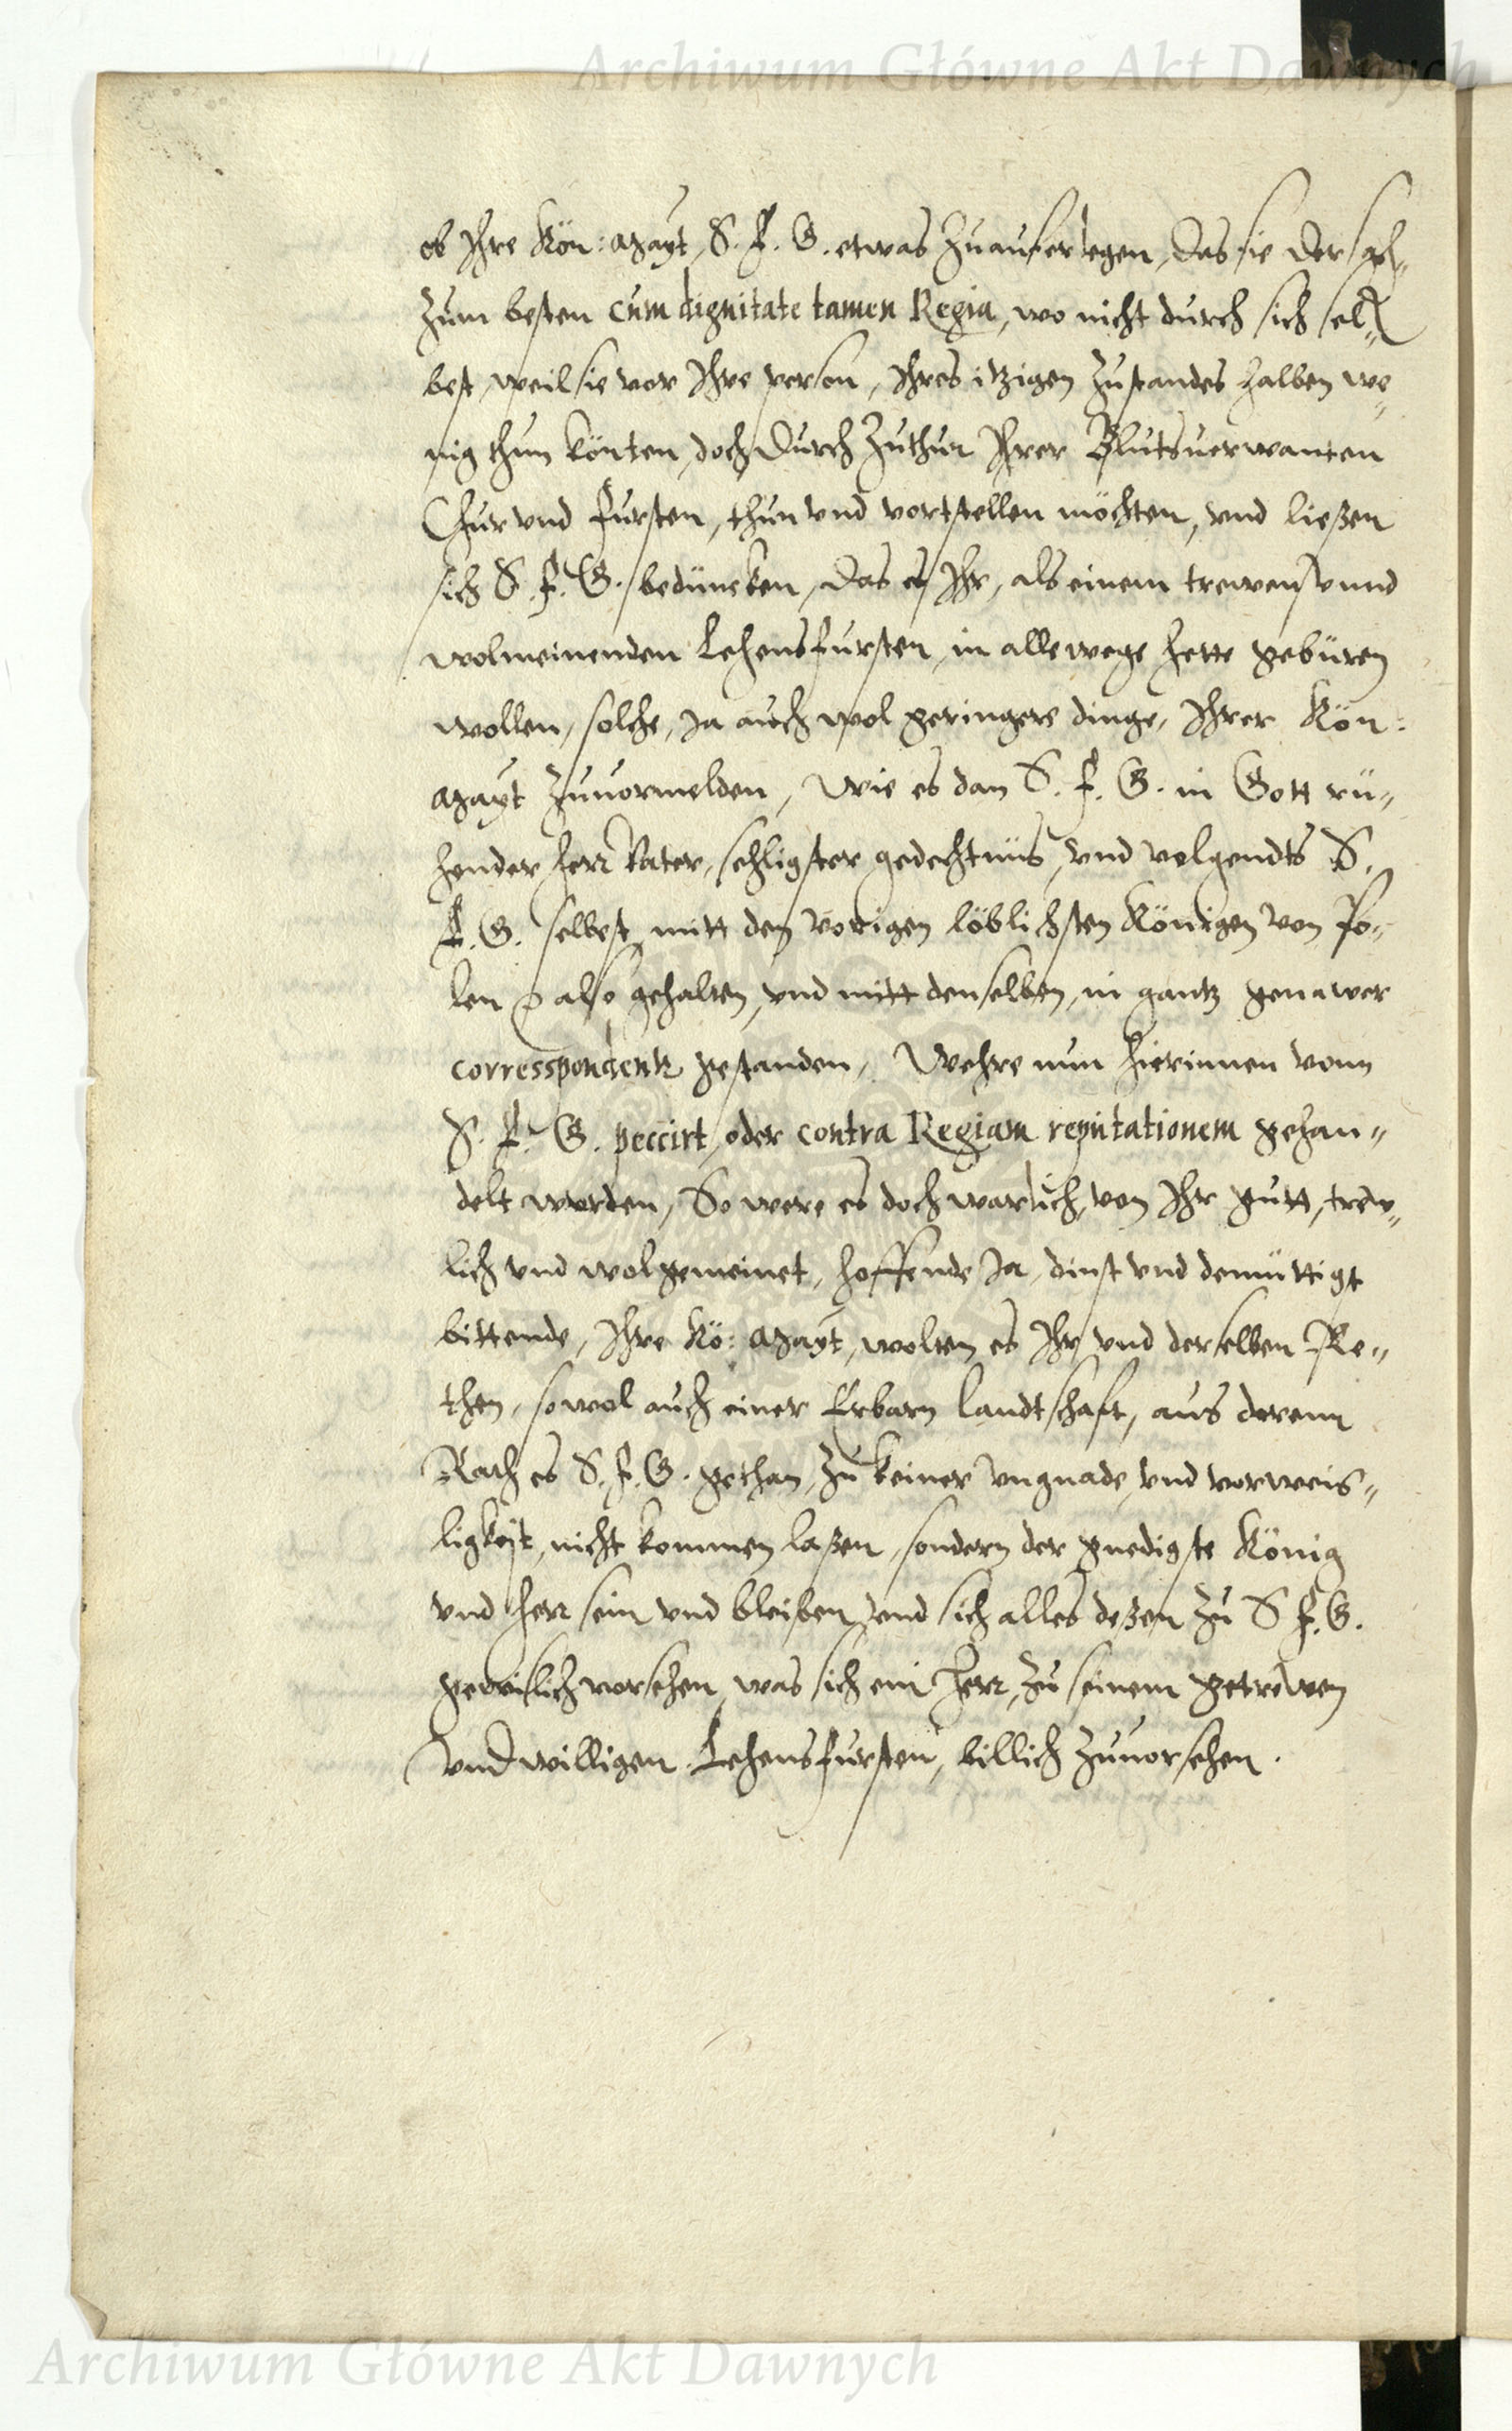 Archiwum Główne Akt Dawnych
ob Ihre Kön: Mayt, S. F. G. etwas Zuauferlegen, das sie derselb„
Zum besten cum dignitate tamen Regia, wo nicht durch sich sel„
best, weil sie vor Ihre person, Ihres itzigen Zustandes halben we„
nig thun könten, doch durch Zuthun Ihrer Blutsuerwanten
Chur vnd fursten, thun vnd vortstellen möchten, vnd ließen
sich S. F. G. bedüncken, das es Ihr, als einem trewen vnnd
wolmeinenden Lehensfursten, in allewege hette gebüren
wollen, solche, Ja auch wol geringere dinge, Ihrer Kön:
Mayt Zuuormelden, Wie es dan S. F. G. in Gott rü„
hender Herr Vater, sehligster gedechtnüs, vnd volgendts S.
F. G. selbest, mitt den vorigen löblichsten Königen von Po„
len also gehalten, vnd mitt denselben, in gantz genawer
corresspondentz gestanden, Wehre nun hierinnen vonn
S. F. G. peccirt, oder contra Regiam reputationem gehan„
delt worden, So were es doch warlich, von Ihr gutt, trew„
lich vnd wolgemeinet, hoffende Ja, dinst vnd demüttigt
bittende, Ihre Kö: Mayt, wolten es Ihr vnd derselben Re„
then, sowol auch einer Erbarn Landtschaft, aus derenn
Rath es S. F. G. gethan, Zu keiner vngnade, vnd vorweis„
ligkeyt, nicht kommen laßen, sondern der gnedigste König
vnd Herr sein vnd bleiben, vnd sich alles deßen Zu S F. G.
gewislich vorsehen, was sich ein Herr, Zu seinem getrewen
vnd willigen Lehensfursten, billich Zuuorsehen.
Archiwum Główne Akt Dawnych